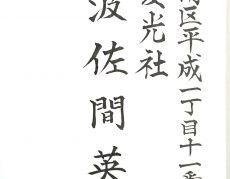 南区平成一丁目十一番
友光社
波佐間英